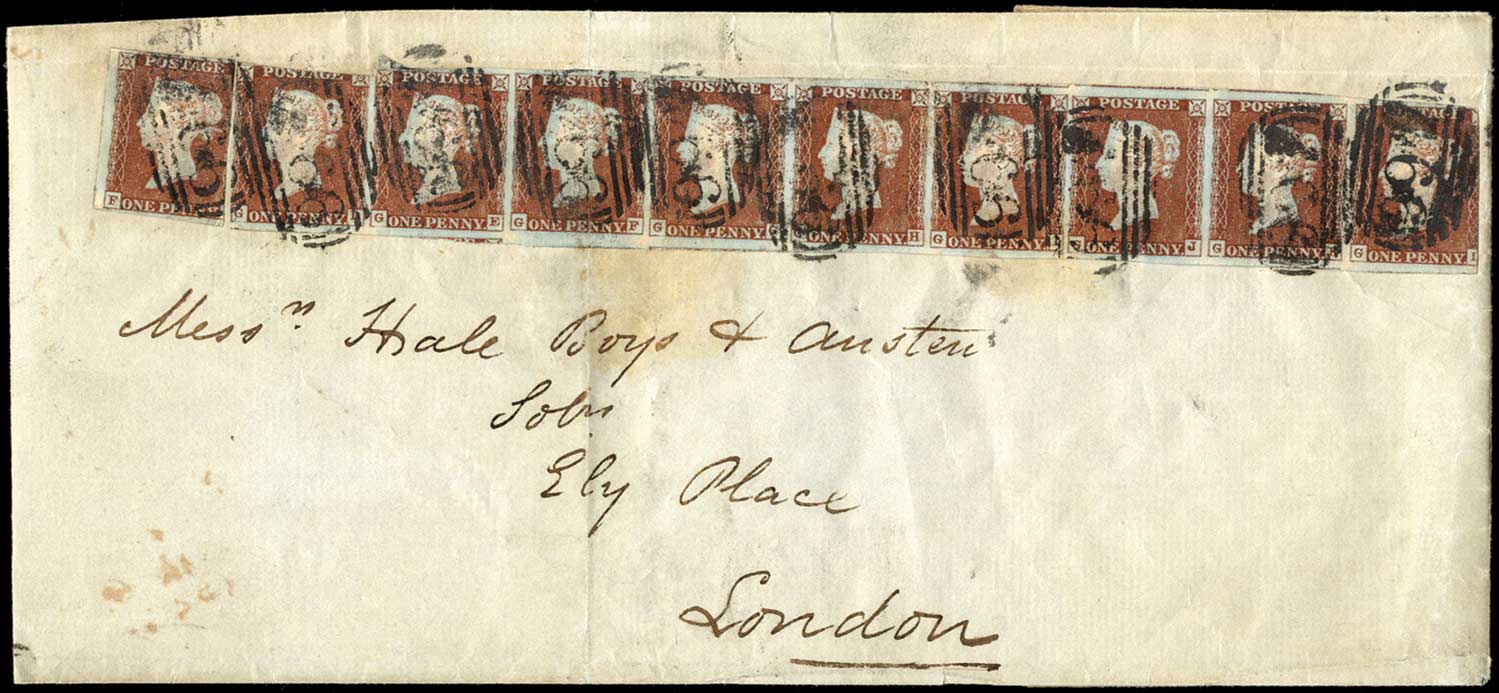 POSTAGE POSTAGE POSTAGE POSTAGE POSTAGE POSTAGE POSTAGE POSTAGE
F ONE G ONE PENNY G ONE PENNY E G ONE PENNY F G ONE PENNY ONE PENNY H G ONE PENNY ONE PENNY J G ONE PENNY G ONE PENNY I
Messrs Hale Boys & Austen
Solrs
Ely Place
London